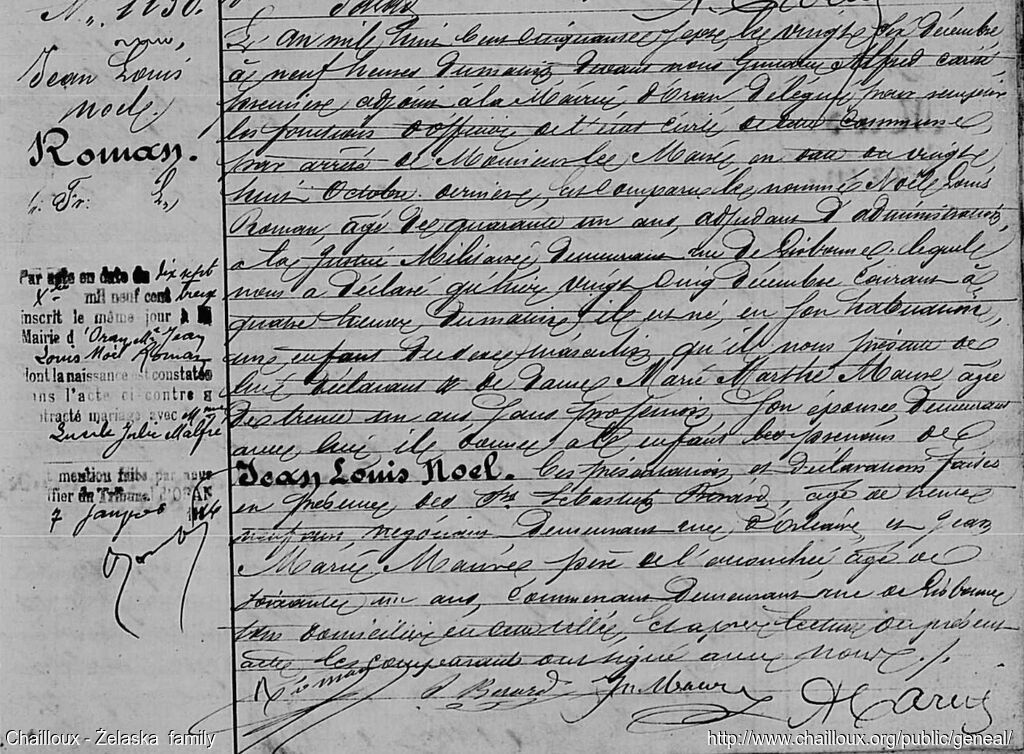 N° 1130.
Jean Louis
Noel
Roman.
Par acte en date du dix sept
Xbre mil neuf cent treize
inscrit le même jour à la
Mairie d'Oran Mr Jean
Louis Noël Roman
dont la naissance est constatée
ans l'acte ci-contre a
ntracté mariage avec Melle
Lucile Julie Malfre
t mention faite par nous
ffier du Tribunal d'ORAN
7 Janvier 1914
L'an mil huit cent cinquante le vingt six Décembre
à neuf heures du matin, devant nous Alfred
premier adjoint à la Mairie d'Oran délégué pour remplir
les fonctions d'officier de l'état civil de cette commune,
par arrêté de Monsieur le Maire, en date du vingt
huit Octobre dernier, est comparu le nommé Noël Louis
Roman, âgé de quarante un ans, adjudant d'administration
à la Justice Militaire, demeurant rue de Lisbonne, lequel
nous a déclaré qu'hier vingt cinq décembre courant à
quatre heures du matin, il est né, en son habitation,
un enfant du sexe masculin qu'il nous présente de
lui déclarant & de dame Marie Marthe Maure, âgée
de trente un ans, sans profession, son épouse, demeurant
avec lui, il donne à l'enfant les prénoms de
Jean Louis Noel. Ces présentations et déclarations faites
en présence des Srs Sébastien Berard, âgé de trente
neuf ans, négociant demeurant rue d', et Jean
Marie Maure père de l'accouchée, âgé de
soixante un ans, demeurant rue de Lisbonne
tous domiciliés en cette ville, et après lecture du présent
acte les comparants ont signé avec nous ./.
Roman S Berard Jn Maure
Chailloux - Želaska family
http://www.chailloux.org/public/geneal/